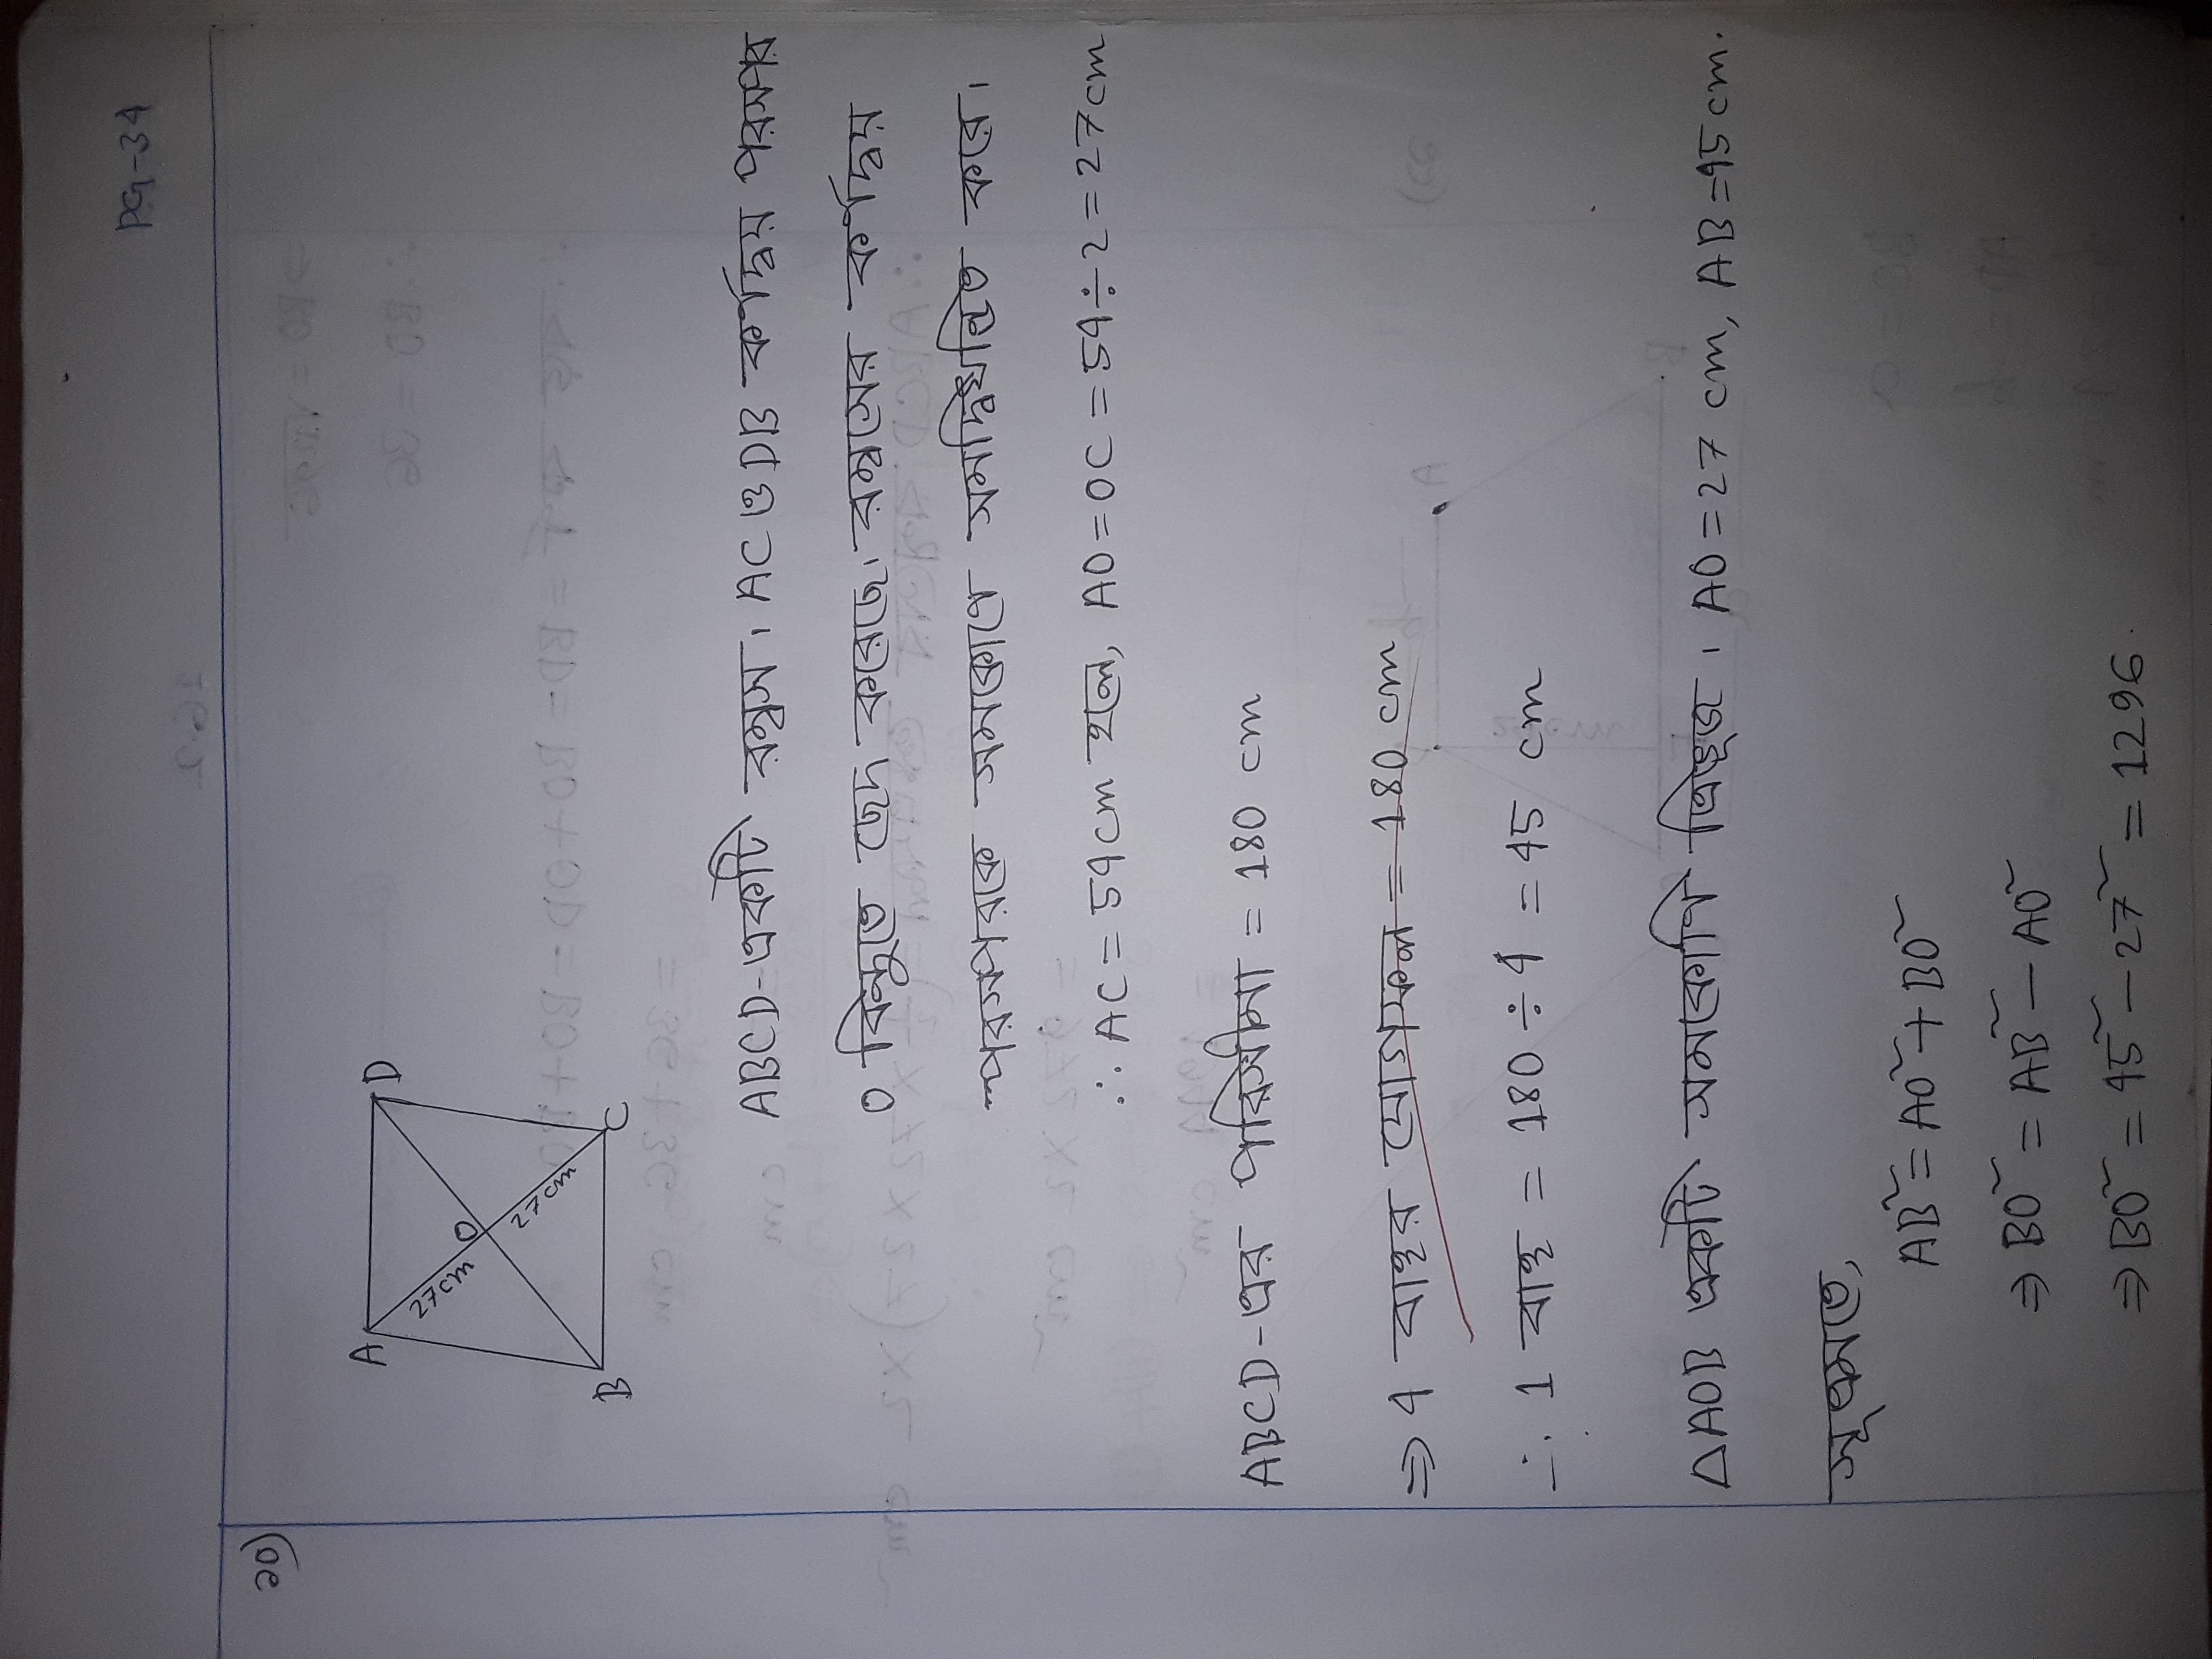 PG-34
১০)
A
D
27cm
O
27cm
B
C
ABCD-একটি রম্বস। AC ও DB কর্ণদ্বয় পরস্পর
O বিন্দুতে ছেদ করেছে। রম্বসের কর্ণদ্বয়
পরস্পরকে সমকোণে সমদ্বিখন্ডিত করে।
∴ AC = 54cm হলে, AO = OC = 54÷2 = 27cm
ABCD-এর পরিসীমা = 180 cm
⇒ 4 বাহুর যোগফল = 180 cm
∴ 1 বাহু = 180 ÷ 4 = 45 cm
△AOB একটি সমকোণি ত্রিভুজ। AO = 27 cm, AB = 45 cm.
সূত্রমতে,
AB² = AO² + BO²
⇒ BO² = AB² − AO²
⇒ BO² = 45² − 27² = 1296.